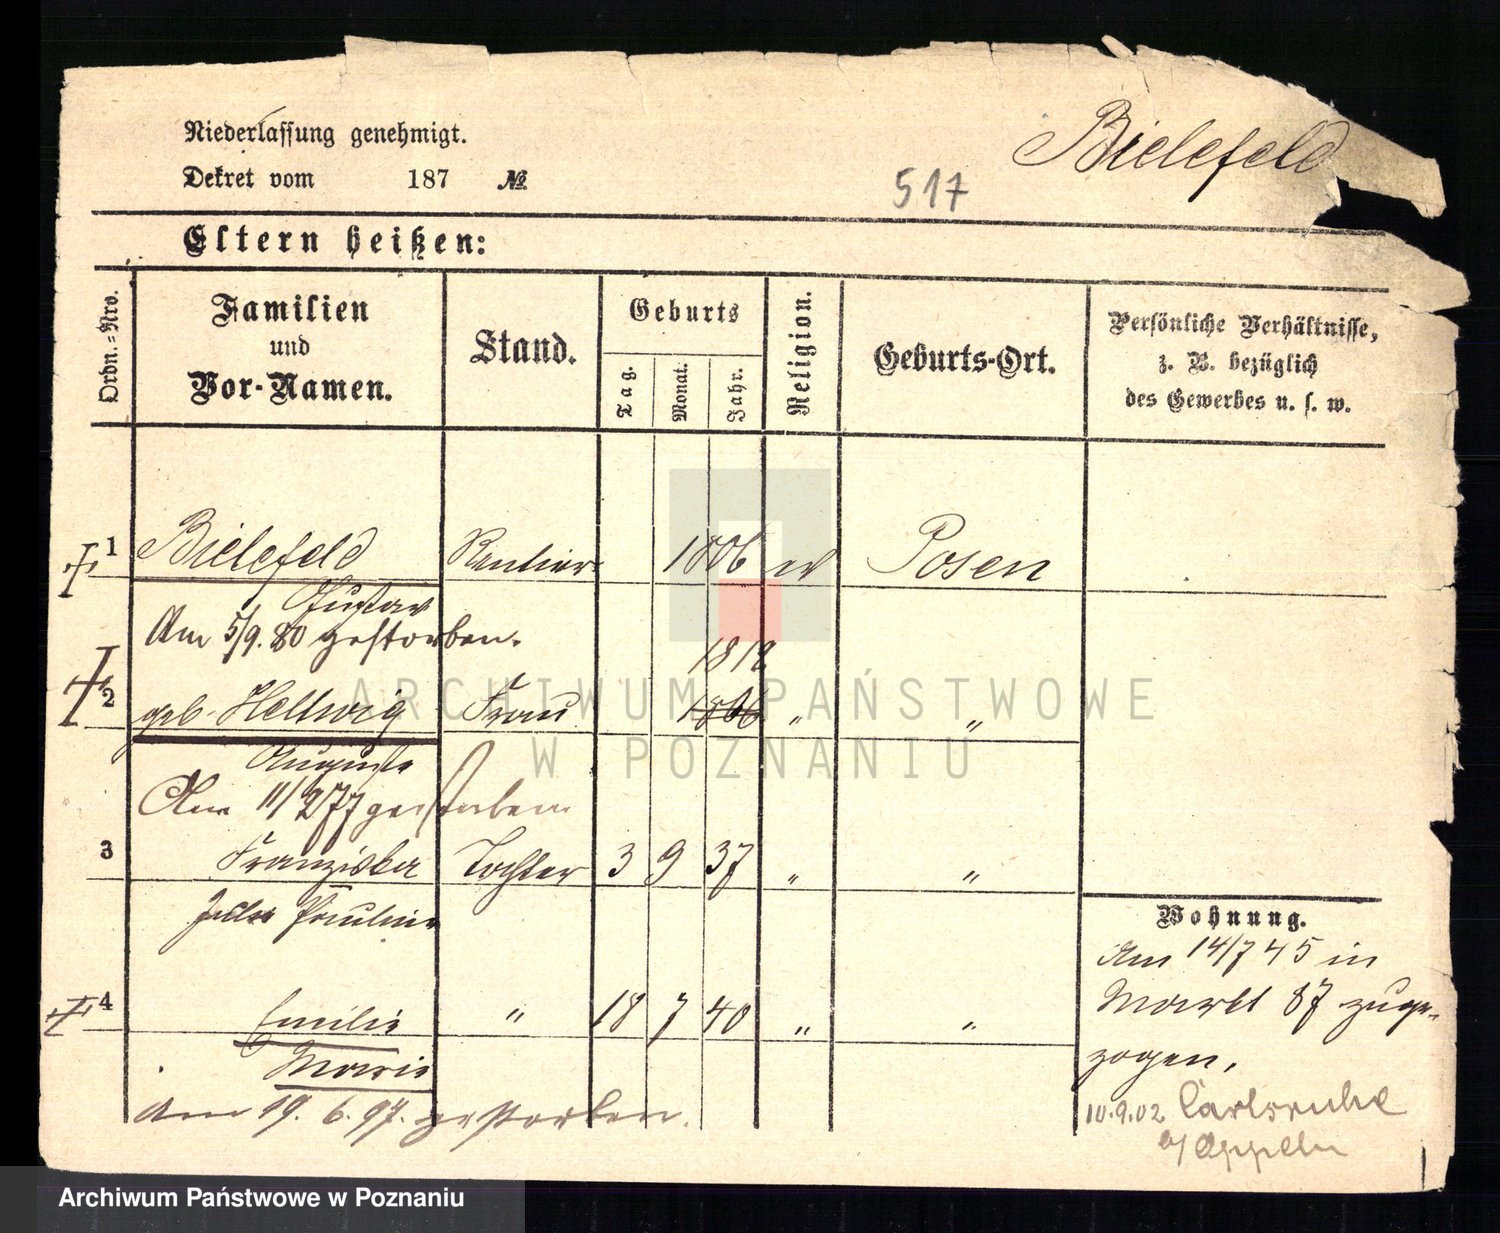 Niederlassung genehmigt.
Dekret vom 187 №
517
Bielefeld
Eltern heißen:
Ordn.=Nro.
Familien
und
Vor-Namen.
Stand.
Geburts
Tag.
Monat.
Jahr.
Religion.
Geburts-Ort.
Persönliche Verhältnisse,
z. B. bezüglich
des Gewerbes u. s. w.
1 Bielefeld Rentier 1806 ev Posen
Gustav
Am 5/9. 80 gestorben.
1812
2 geb. Hellwig Frau 1806 " "
Auguste
Am 11/2 77 gestorben
3 Franziska Tochter 3 9 37 " "
Julie Pauline
4 Emilie " 18 7 40 " "
Marie
Am 19. 6. 97. gestorben.
Wohnung.
Am 14/7 45 in
Markt 87 zuge-
zogen.
10.9.02. Carlsruhe
o/ Oppeln
ARCHIWUM PAŃSTWOWE
W POZNANIU
Archiwum Państwowe w Poznaniu